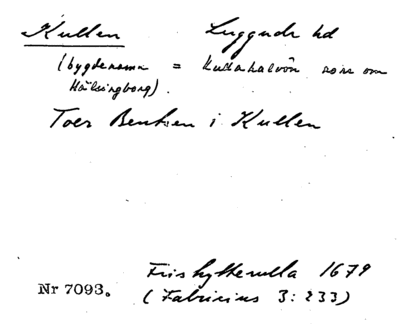 Kullen Luggude hd
(bygdenamn = Kullahalvön norr om
Hälsingborg).
Toer Bentsen i Kullen
Friskytterulla 1679
Nr 7093. (Fabricius 3:233)